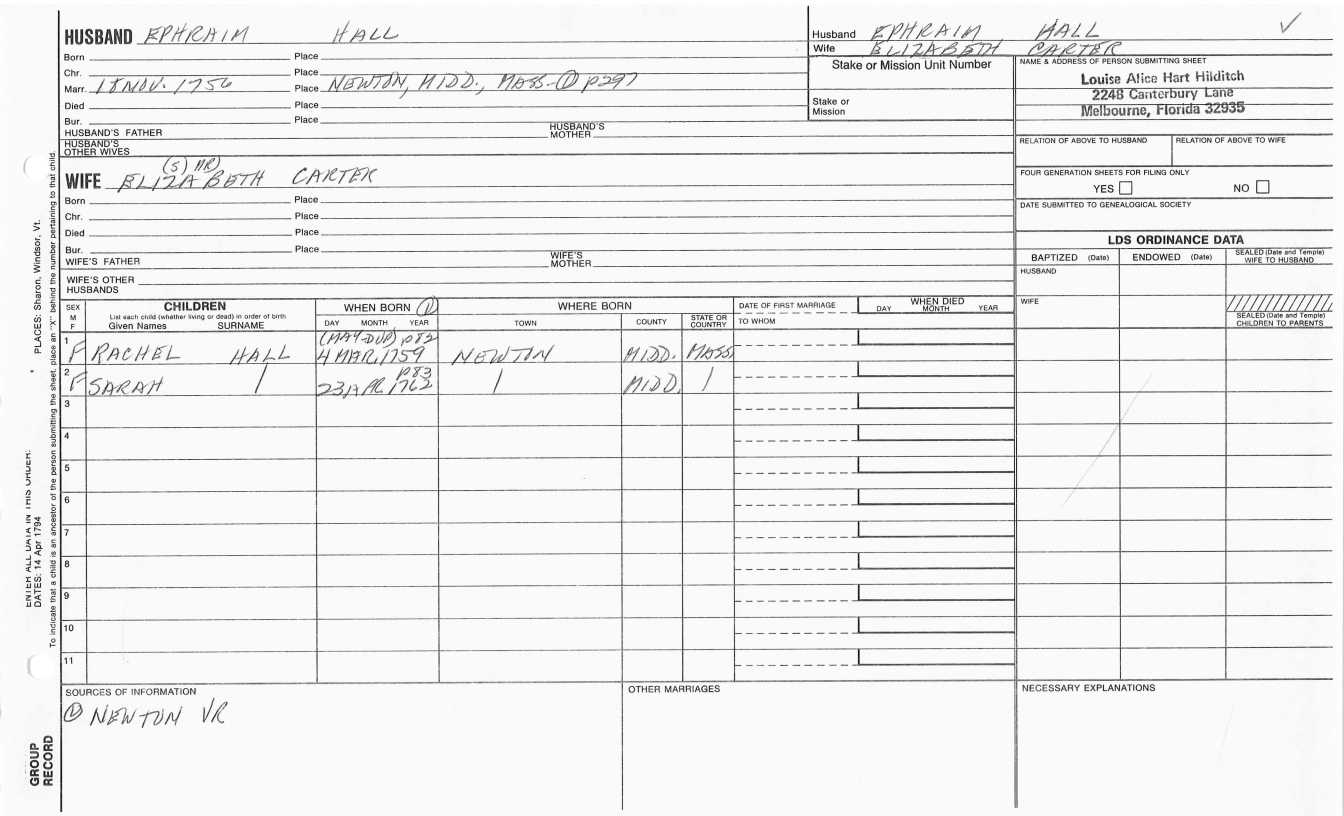 HUSBAND EPHRAIM HALL
Born Place
Chr. Place
Marr. 18 NOV. 1756 Place NEWTON, MIDD., MASS-① p297
Died Place
Bur. Place
HUSBAND'S FATHER HUSBAND'S MOTHER
HUSBAND'S OTHER WIVES
(S) HR)
WIFE ELIZABETH CARTER
Born Place
Chr. Place
Died Place
Bur. Place
WIFE'S FATHER WIFE'S MOTHER
WIFE'S OTHER HUSBANDS
Husband EPHRAIM HALL
Wife ELIZABETH CARTER
Stake or Mission Unit Number
Stake or Mission
NAME & ADDRESS OF PERSON SUBMITTING SHEET
Louise Alice Hart Hilditch
2248 Canterbury Lane
Melbourne, Florida 32935
RELATION OF ABOVE TO HUSBAND RELATION OF ABOVE TO WIFE
FOUR GENERATION SHEETS FOR FILING ONLY
YES NO
DATE SUBMITTED TO GENEALOGICAL SOCIETY
LDS ORDINANCE DATA
BAPTIZED (Date) ENDOWED (Date) SEALED (Date and Temple) WIFE TO HUSBAND
HUSBAND
WIFE
SEALED (Date and Temple) CHILDREN TO PARENTS
SEX M F
CHILDREN
List each child (whether living or dead) in order of birth
Given Names SURNAME
WHEN BORN ①
DAY MONTH YEAR
WHERE BORN
TOWN COUNTY STATE OR COUNTRY
DATE OF FIRST MARRIAGE
TO WHOM
WHEN DIED
DAY MONTH YEAR
(MAY-DUP) p82
1 F RACHEL HALL 4 MAR. 1759 NEWTON MIDD. MASS.
p83
2 F SARAH / 23 APR. 1762 / MIDD. /
3
4
5
6
7
8
9
10
11
SOURCES OF INFORMATION
① NEWTON VR
OTHER MARRIAGES
NECESSARY EXPLANATIONS
PLACES: Sharon, Windsor, Vt.
ENTER ALL DATA IN THIS ORDER:
DATES: 14 Apr 1794
To indicate that a child is an ancestor of the person submitting the sheet, place an "X" behind the number pertaining to that child.
GROUP RECORD